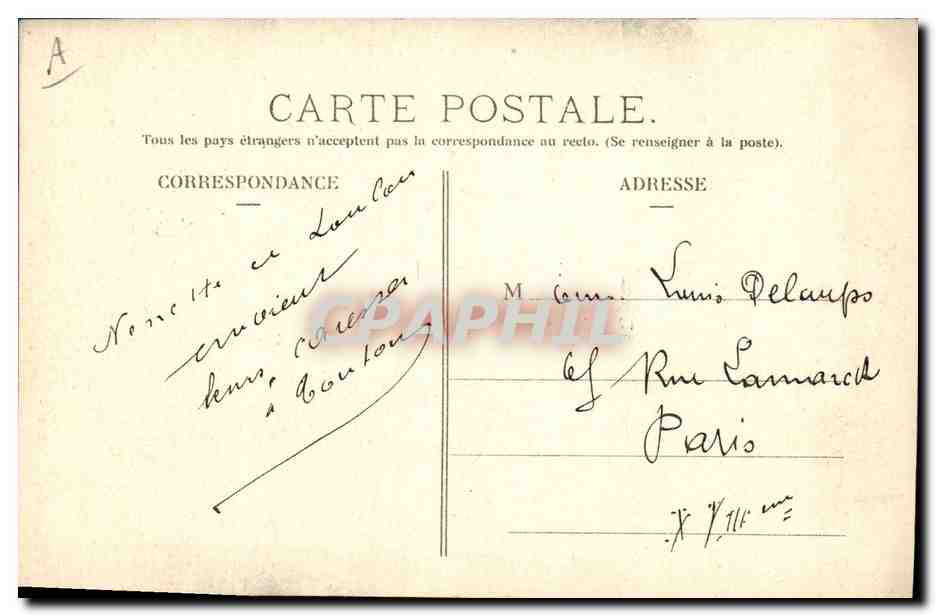 A
CARTE POSTALE.
Tous les pays étrangers n'acceptent pas la correspondance au recto. (Se renseigner à la poste).
CORRESPONDANCE
ADRESSE
Nenette et Loulou
envoient
leurs caresses
à Toutou
M eme. Louis Delamps
65 Rue Lamarck
Paris
XVIII eme
CPAPHIL